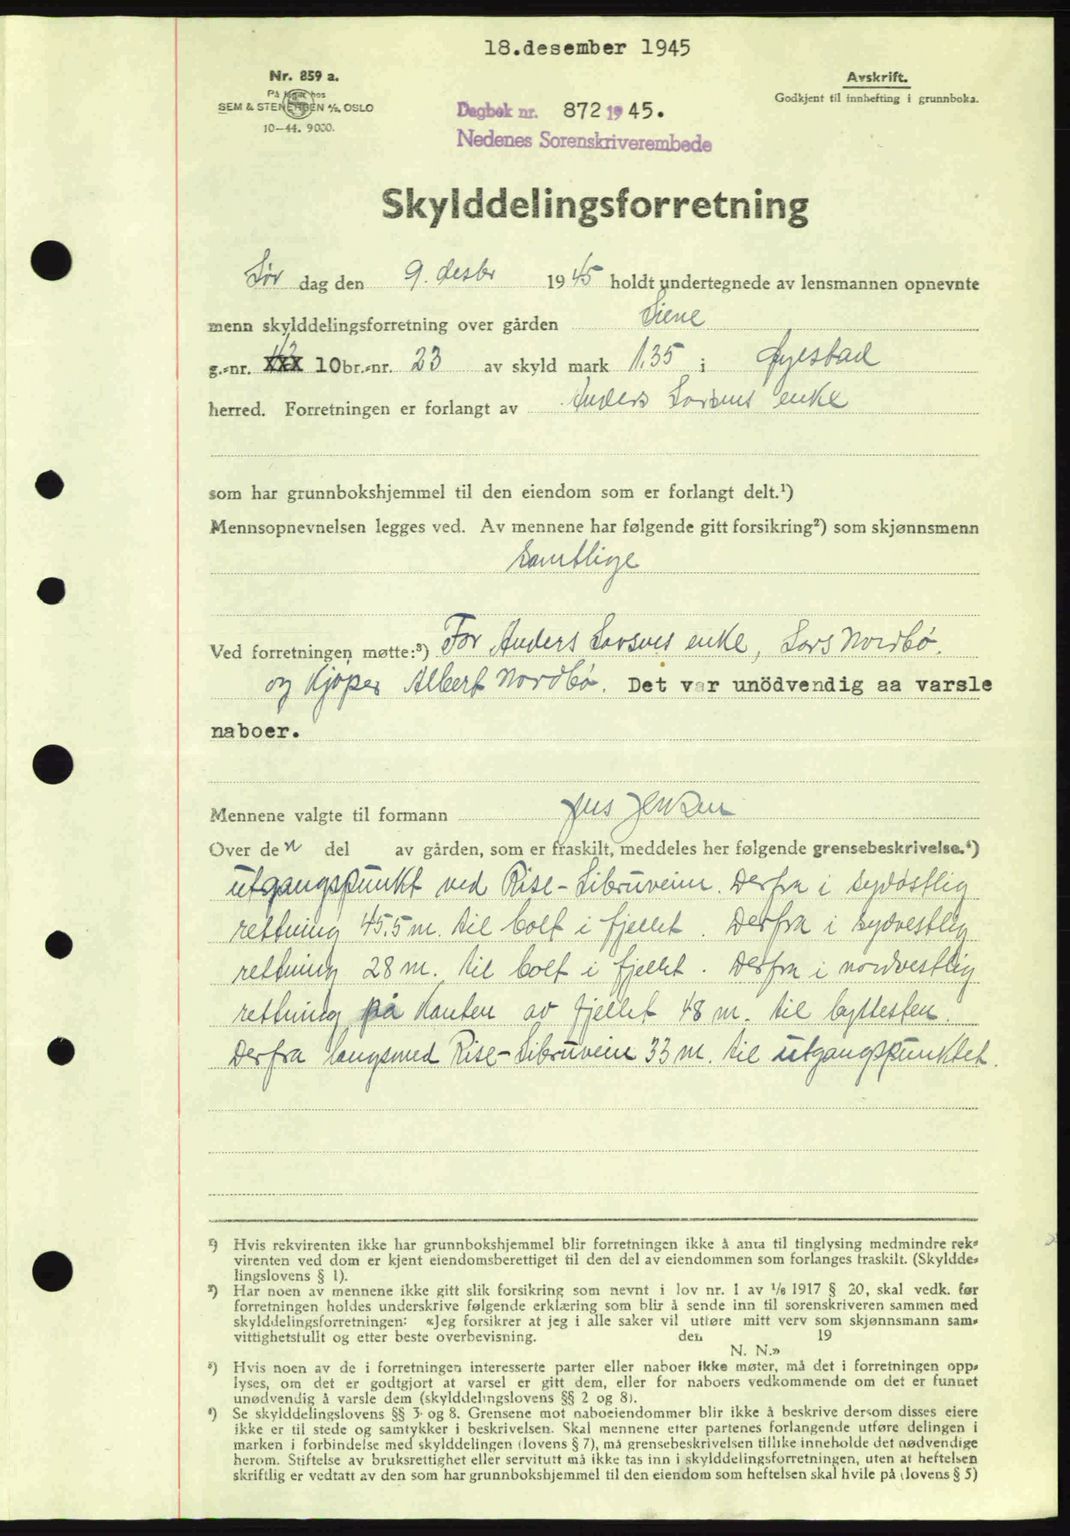 18.desember 1945
Nr. 859 a.
På lager hos
SEM & STENERSEN A/S, OSLO
10—44. 9000.
Avskrift.
Godkjent til innhefting i grunnboka.
Dagbok nr. 872 19 45.
Nedenes Sorenskriverembede
Skylddelingsforretning
Søn dag den 9. desbr 1945 holdt undertegnede av lensmannen opnevnte
menn skylddelingsforretning over gården
g.-nr. XXX 10 br.-nr. 23 av skyld mark 1.35 i Øyestad
herred. Forretningen er forlangt av Anders Larsens enke
som har grunnbokshjemmel til den eiendom som er forlangt delt.¹)
Mennsopnevnelsen legges ved. Av mennene har følgende gitt forsikring²) som skjønnsmenn
Samtlige
Ved forretningen møtte:³) For Anders Larsens enke, Lars Nordbö.
og Kjöper Albert Nordbö. Det var unödvendig aa varsle
naboer.
Mennene valgte til formann Jens Jensen
Over den del av gården, som er fraskilt, meddeles her følgende grensebeskrivelse.⁴)
utgangspunkt ved Rise-Libruveien. Derfra i sydöstlig
retning 45.5 m. til bolt i fjellet. Derfra i sydvestlig
retning 28 m. til bolt i fjellet. Derfra i nordvestlig
retning på Kanten av fjellet 48 m. til byttesten.
Derfra langsmed Rise-Libruveien 33 m. til utgangspunktet.
¹) Hvis rekvirenten ikke har grunnbokshjemmel blir forretningen ikke å anta til tinglysing medmindre rek-
virenten ved dom er kjent eiendomsberettiget til den del av eiendommen som forlanges fraskilt. (Skyldde-
lingslovens § 1).
²) Har noen av mennene ikke gitt slik forsikring som nevnt i lov nr. 1 av 1/6 1917 § 20, skal vedk. før
forretningen holdes underskrive følgende erklæring som blir å sende inn til sorenskriveren sammen med
skylddelingsforretningen: «Jeg forsikrer at jeg i alle saker vil utføre mitt verv som skjønnsmann sam-
vittighetsfullt og etter beste overbevisning. den 19
N. N.»
³) Hvis noen av de i forretningen interesserte parter eller naboer ikke møter, må det i forretningen opp-
lyses, om det er godtgjort at varsel er gitt dem, eller for naboers vedkommende om det er funnet
unødvendig å varsle dem (skylddelingslovens §§ 2 og 8).
⁴) Se skylddelingslovens §§ 3 og 8. Grensene mot naboeiendommer blir ikke å beskrive dersom disses eiere
ikke er til stede og samtykker i beskrivelsen. Skal mennene etter partenes forlangende utføre delingen i
marken i forbindelse med skylddelingen (lovens § 7), må grensebeskrivelsen tillike inneholde det nødvendige
herom. Stiftelse av bruksrettighet eller servitutt må ikke tas inn i skylddelingsforretningen, uten at heftelsen
skriftlig er vedtatt av den som har grunnbokshjemmel til den eiendom som heftelsen skal hvile på (lovens § 5)